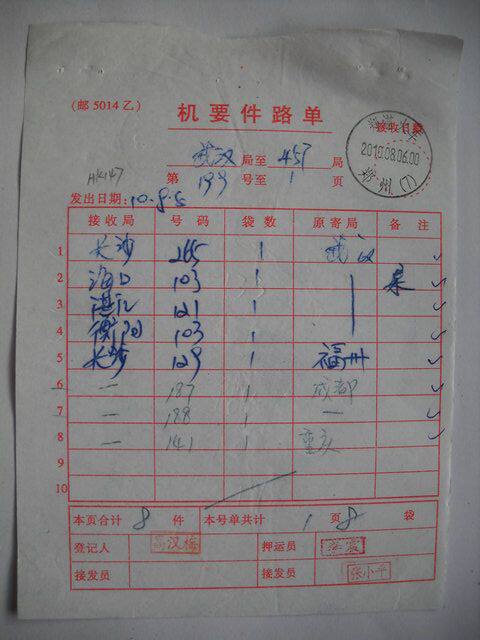 (邮 5014 乙)
机要件路单
接收日戳
2010.08.06.00
郴州(7)
武汉 局至 457 局
第 199 号至 1 页
发出日期: 10.8.5
接收局 号码 袋数 原寄局 备注
1 长沙 265 1 武汉
2 海口 103 1
3 湛江 121 1
4 衡阳 103 1
5 长沙 129 1 福州
6 一 187 1 成都
7 一 188 1 一
8 一 141 1 重庆
9
10
本页合计 8 件 本号单共计 1 页 8 袋
登记人 押运员
接发员 接发员 张小平